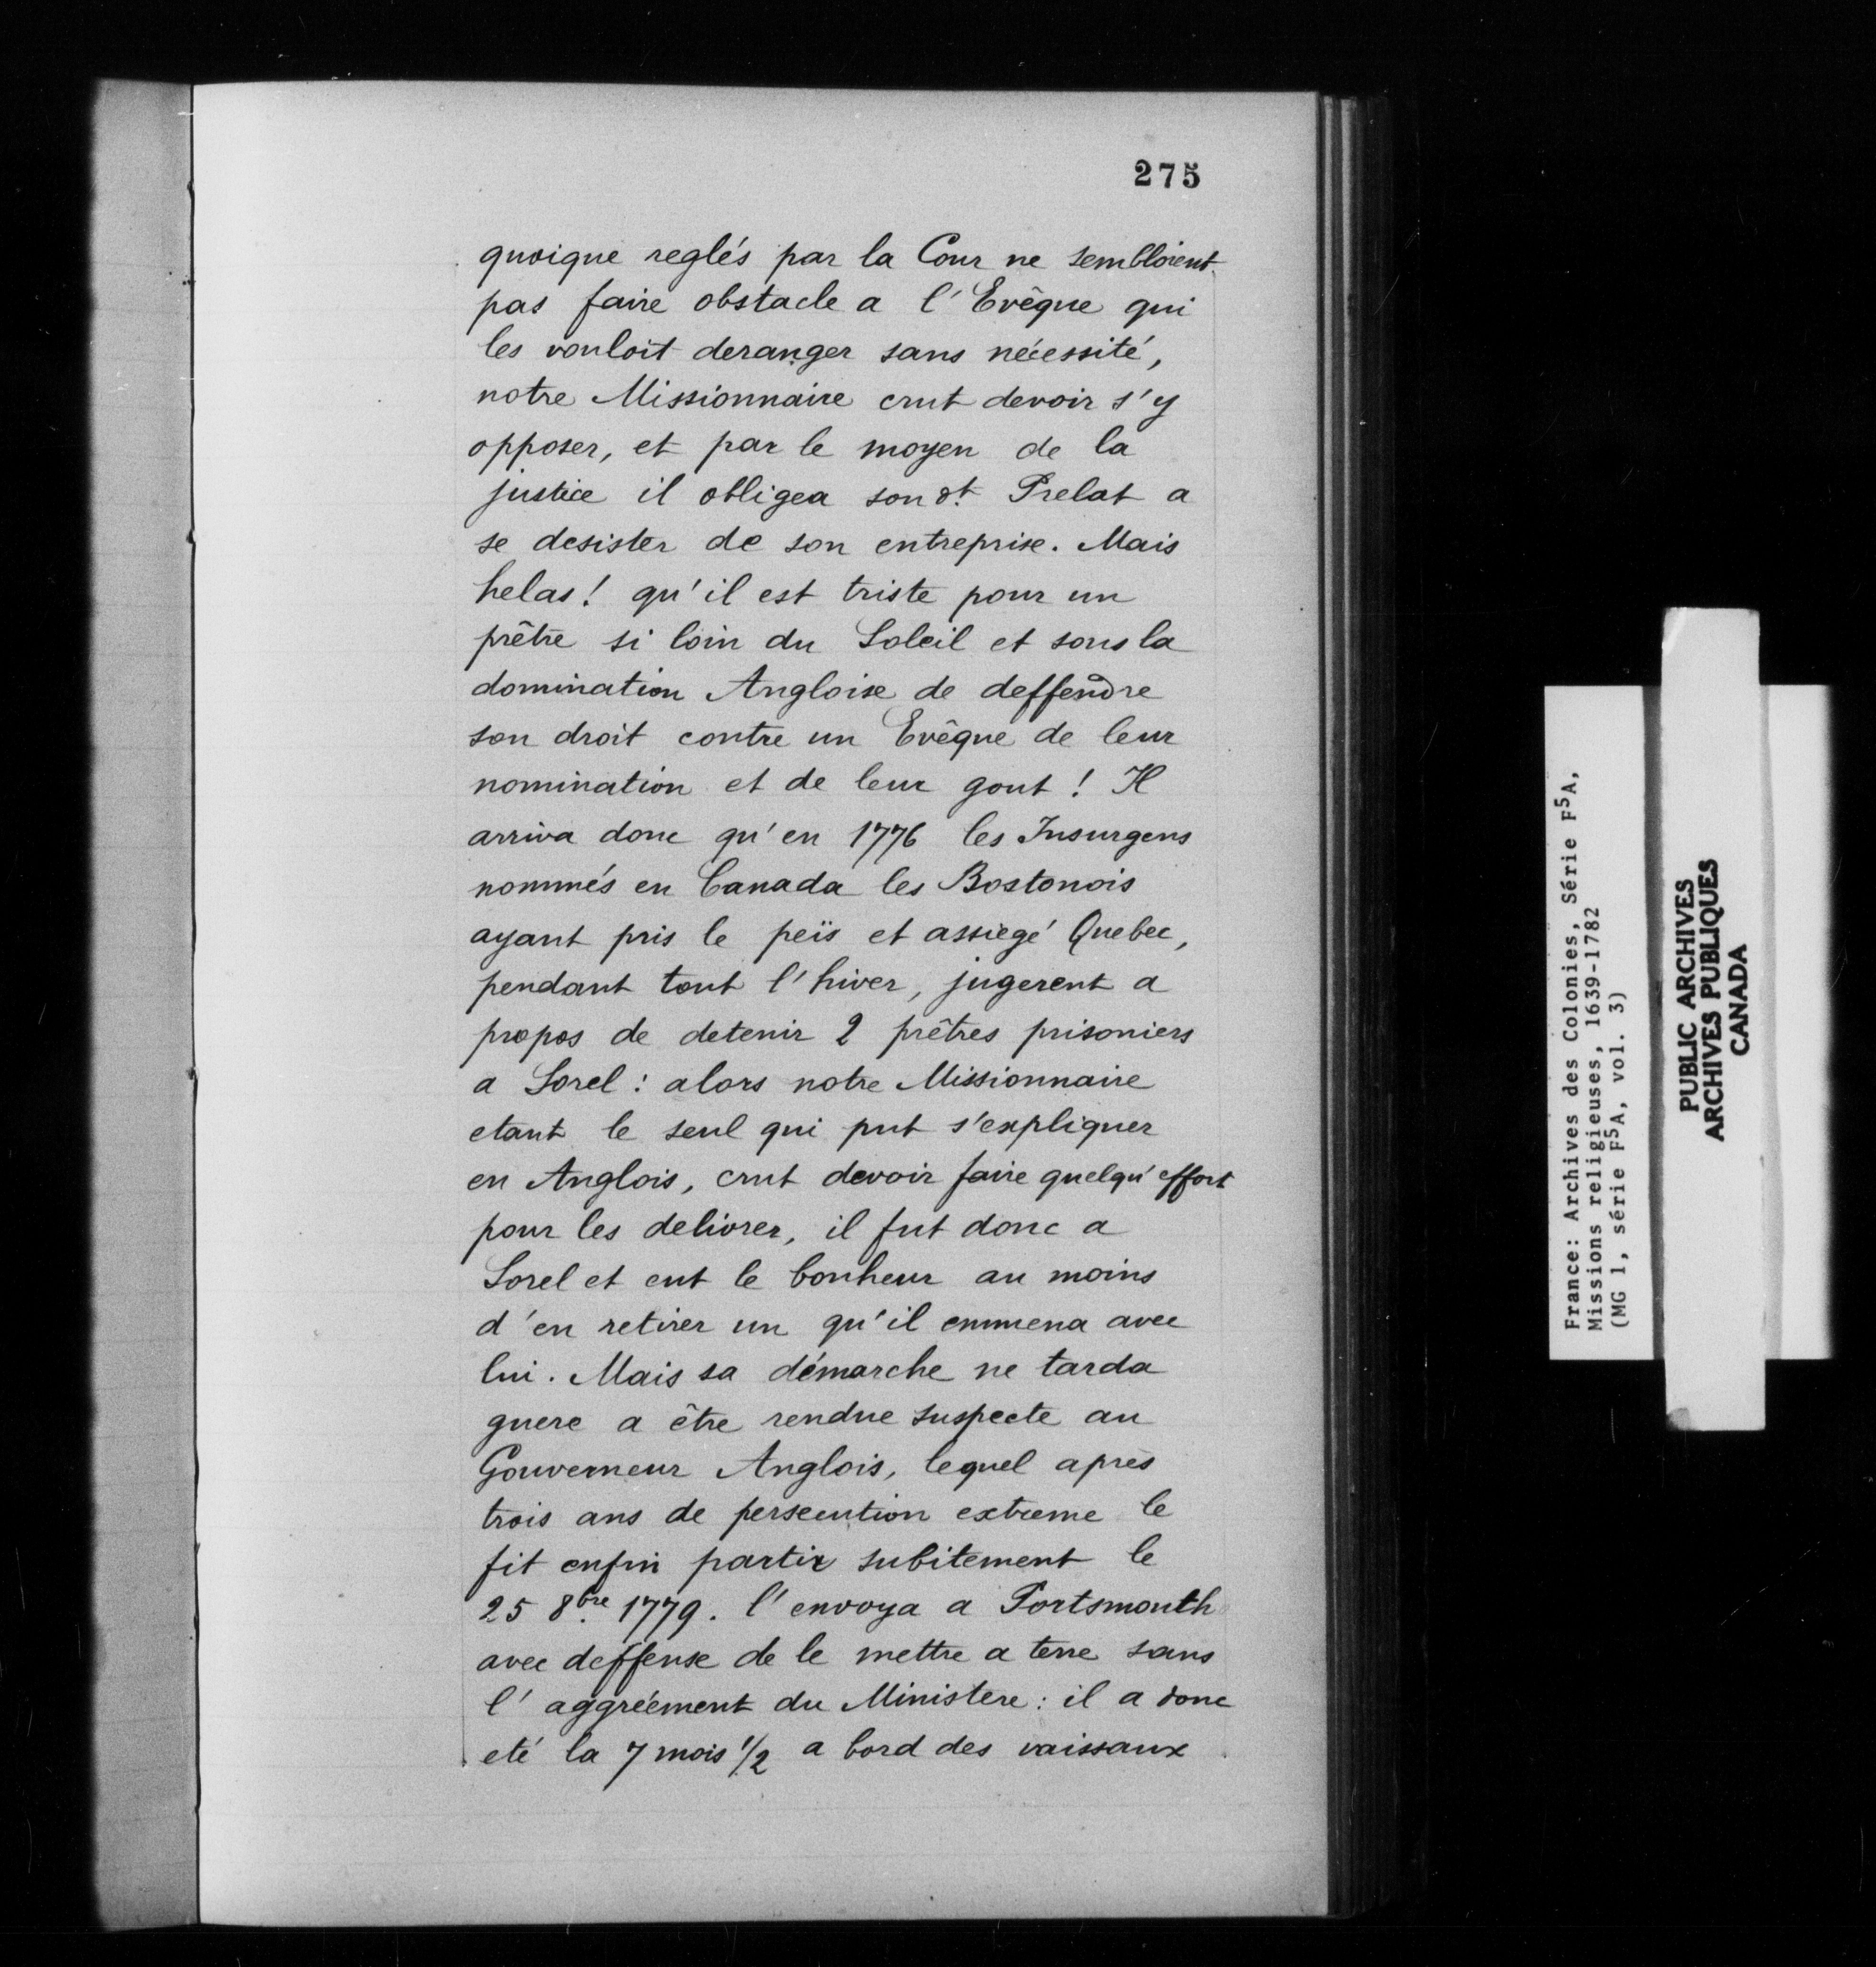 275
quoique reglés par la Cour ne sembloient
pas faire obstacle a l'Evêque qui
les vouloit deranger sans nécessité,
notre Missionnaire crut devoir s'y
opposer, et par le moyen de la
justice il obligea son dt. Prelat a
se desister de son entreprise. Mais
helas! qu'il est triste pour un
prêtre si loin du Soleil et sous la
domination Angloise de deffendre
son droit contre un Evêque de leur
nomination et de leur gout! Il
arriva donc qu'en 1776 les Insurgens
nommés en Canada les Bostonois
ayant pris le peïs et assiegé Quebec,
pendant tout l'hiver, jugerent a
propos de detenir 2 prêtres prisoniers
a Sorel: alors notre Missionnaire
etant le seul qui put s'expliquer
en Anglois, crut devoir faire quelqu'effort
pour les delivrer, il fut donc a
Sorel et eut le bonheur au moins
d'en retirer un qu'il emmena avec
lui. Mais sa démarche ne tarda
guere a être rendue suspecte au
Gouverneur Anglois, lequel après
trois ans de persecution extreme le
fit enfin partir subitement le
25 8bre 1779. l'envoya a Portsmouth
avec deffense de le mettre a terre sans
l'aggréement du Ministere: il a donc
eté la 7 mois 1/2 a bord des vaissaux
France: Archives des Colonies, Série F5A,
Missions religieuses, 1639-1782
(MG 1, série F5A, vol. 3)
PUBLIC ARCHIVES
ARCHIVES PUBLIQUES
CANADA